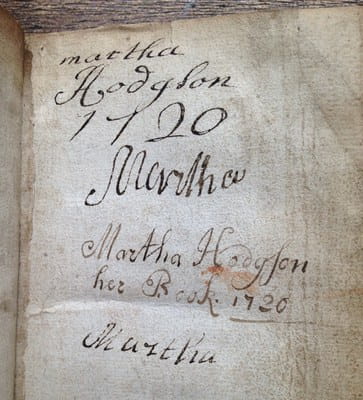 martha
Hodgson
1720
Martha
Martha Hodgson
her Book. 1720
Martha